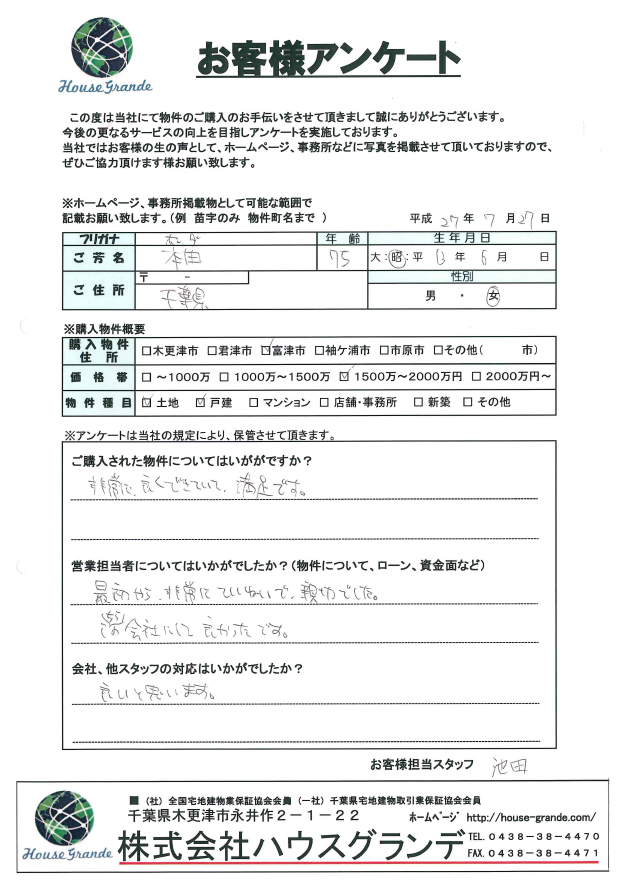 House Grande
お客様アンケート
この度は当社にて物件のご購入のお手伝いをさせて頂きまして誠にありがとうございます。
今後の更なるサービスの向上を目指しアンケートを実施しております。
当社ではお客様の生の声として、ホームページ、事務所などに写真を掲載させて頂いておりますので、
ぜひご協力頂けます様お願い致します。
※ホームページ、事務所掲載物として可能な範囲で
記載お願い致します。(例 苗字のみ 物件町名まで )
平成 27 年 7 月 27 日
フリガナ ホンダ 年 齢 生年月日
ご芳名 本田 75 大:昭:平 13 年 6 月 日
ご住所 〒 - 性別
千葉県 男 ・ 女
※購入物件概要
購入物件住所 □木更津市 □君津市 ☑富津市 □袖ケ浦市 □市原市 □その他( 市)
価格帯 □~1000万 □1000万~1500万 ☑1500万~2000万円 □2000万円~
物件種目 ☑土地 ☑戸建 □マンション □店舗・事務所 □新築 □その他
※アンケートは当社の規定により、保管させて頂きます。
ご購入された物件についてはいががですか?
非常に良くできていて、満足です。
営業担当者についてはいかがでしたか?(物件について、ローン、資金面など)
最初から、非常にていねいで、親切でした。
会社にして良かったです。
会社、他スタッフの対応はいかがでしたか?
良いと思います。
お客様担当スタッフ 池田
House Grande
■(社)全国宅地建物業保証協会会員 (一社)千葉県宅地建物取引業保証協会会員
千葉県木更津市永井作2-1-22 ホームページ http://house-grande.com/
株式会社ハウスグランデ
TEL. 0438-38-4470
FAX. 0438-38-4471